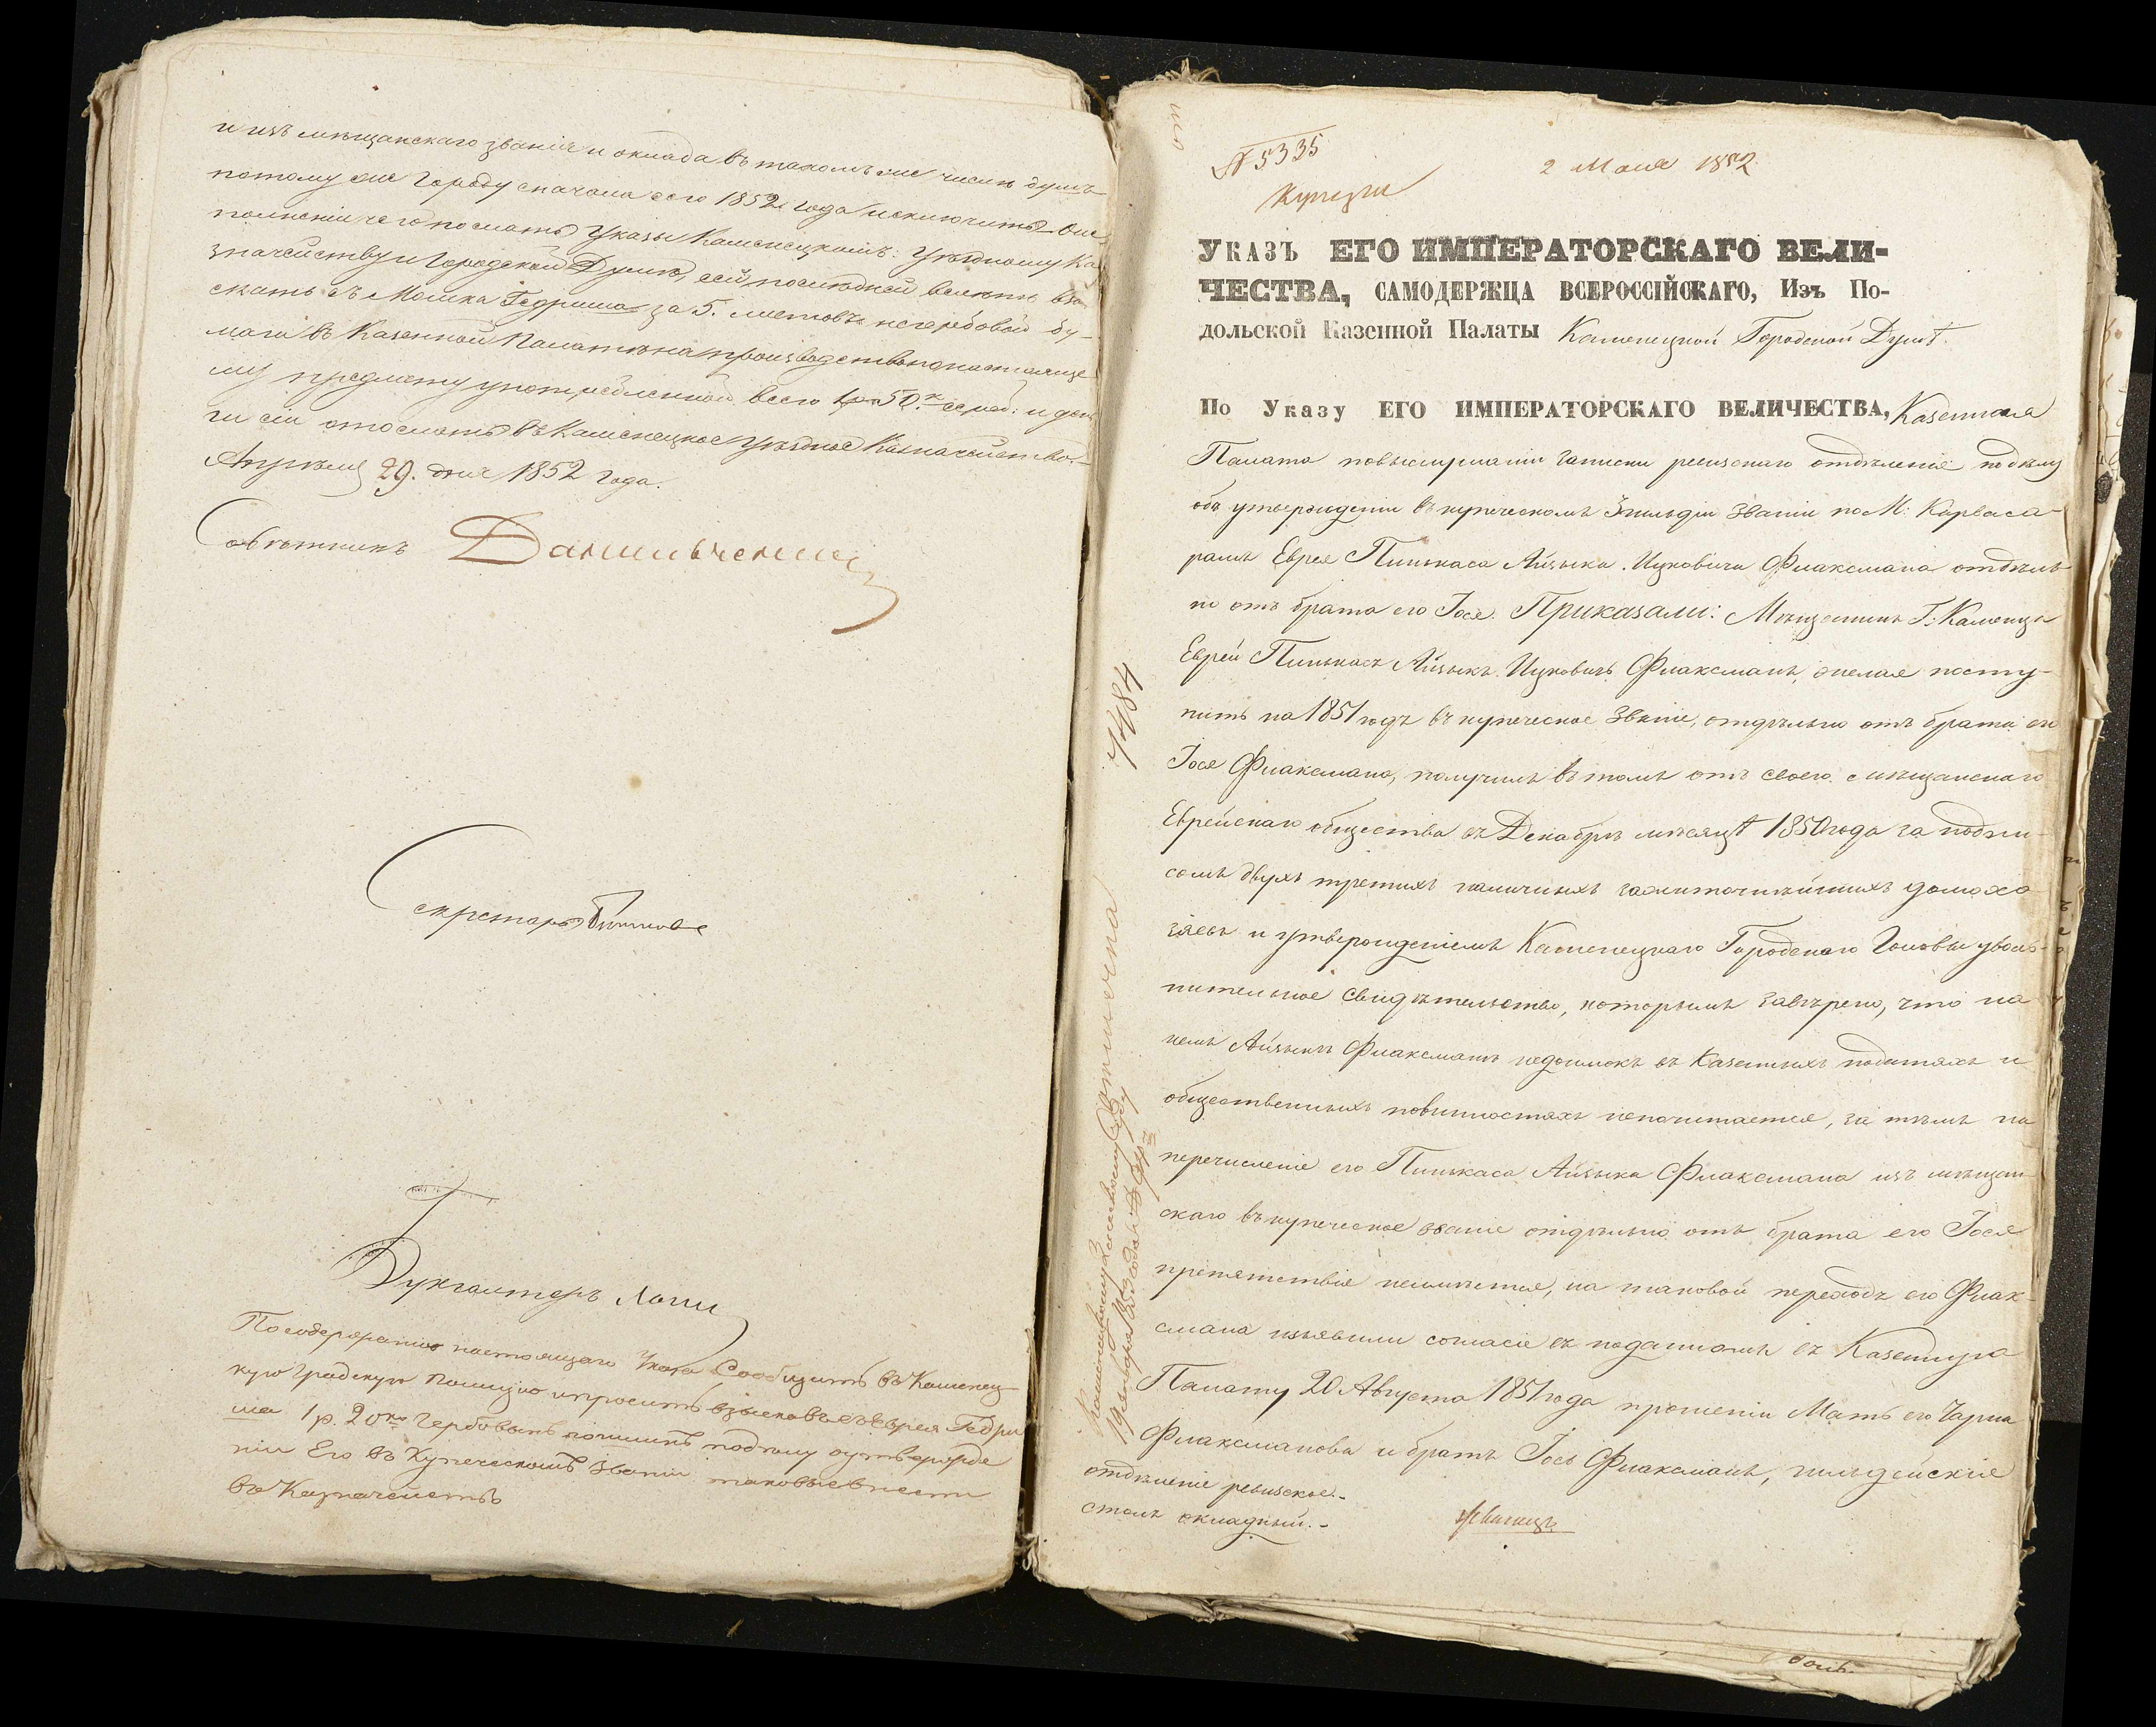 и изъ мѣщанскаго званія и оклада въ такомъ же числѣ душъ
потому же городу сначала сего 1852 года исключить. О ис-
полненіи чего послать Указы Каменецкимъ: Уѣздному Ка-
значейству и Городской Думѣ, сей послѣдней велѣть взы-
скать съ Мошка Гедриша за 5. листовъ негербовой бу-
маги въ Казенной Палатѣ на производство по настояще-
му предмету употребленной всего 50 к. сереб: и день-
ги сіи отослать въ Каменецкое Уѣздное Казначейство.
Апрѣля 29. дня 1852 года.
Совѣтникъ Данильченко
Секретарь
Бухгалтеръ
По содержанію настоящаго Указа Сообщить въ Каменец-
кую Градскую Полицію и просить взыскавъ съ еврея Гедри-
ша 1 р. 20 ко гербовыхъ пошлинъ по дѣлу о утвержде-
ніи Его въ Купеческомъ званіи таковые внести
въ Казначейство
№ 5335
2 Мая 1852
Купцы
УКАЗЪ ЕГО ИМПЕРАТОРСКАГО ВЕЛИ-
ЧЕСТВА, САМОДЕРЖЦА ВСЕРОССІЙСКАГО, Изъ По-
дольской Казенной Палаты Каменецкой Городской Думѣ.
По Указу ЕГО ИМПЕРАТОРСКАГО ВЕЛИЧЕСТВА, Казенная
Палата по выслушаніи записки ревизскаго отдѣленія по дѣлу
объ утвержденіи въ купеческомъ 3 гильдіи званіи по М: Карваса-
рамъ Еврея Пинькаса Айзыка Ицковича Флаксмана отдѣль-
но отъ брата его Іося. Приказали: Мѣщанинъ Г: Каменца
Еврей Пинькасъ Айзыкъ Ицковичъ Флаксманъ, желая посту-
пить на 1851 годъ въ купеческое званіе, отдѣльно отъ брата его
Іося Флаксмана, получилъ въ томъ отъ своего мѣщанскаго
Еврейскаго общества въ Декабрѣ мѣсяцѣ 1850 года за подпи-
сомъ двухъ третихъ наличныхъ зажиточнѣйшихъ домохо-
зяевъ и утвержденіемъ Каменецкаго Городскаго Головы уволь-
нительное свидѣтельство, которымъ завѣрено, что на
немъ Айзыкѣ Флаксманѣ недоимокъ въ Казенныхъ податяхъ и
общественныхъ повинностяхъ непочитается, за тѣмъ на
перечисленіе его Пинькаса Айзыка Флаксмана изъ мѣщан-
скаго въ купеческое званіе отдѣльно отъ брата его Іося
препятствія неимѣется, на таковой переходъ его Флак-
смана изъявили согласіе въ поданномъ въ Казенную
Палату 20 Августа 1851 года прошеніи Мать его Чарна
Флаксманова и братъ Іось Флаксманъ, гильдейскіе
отдѣленіе ревизское.-
столъ окладный.-